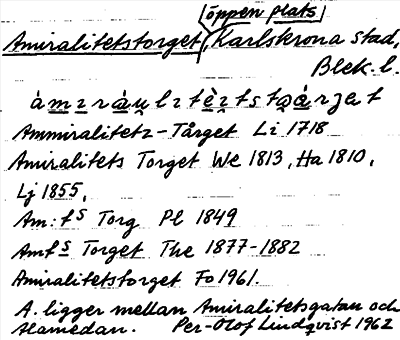 (öppen plats)
Amiralitetstorget, Karlskrona stad,
Blek. l.
Ammiralitetz-Tårget Li 1718
Amiralitets Torget We 1813, Ha 1810,
Lj 1855,
Am:ts Torg Pl 1849
Amts Torget The 1877-1882
Amiralitetstorget Fo 1961.
A. ligger mellan Amiralitetsgatan och
Alamedan. Per-Olof Lindqvist 1962